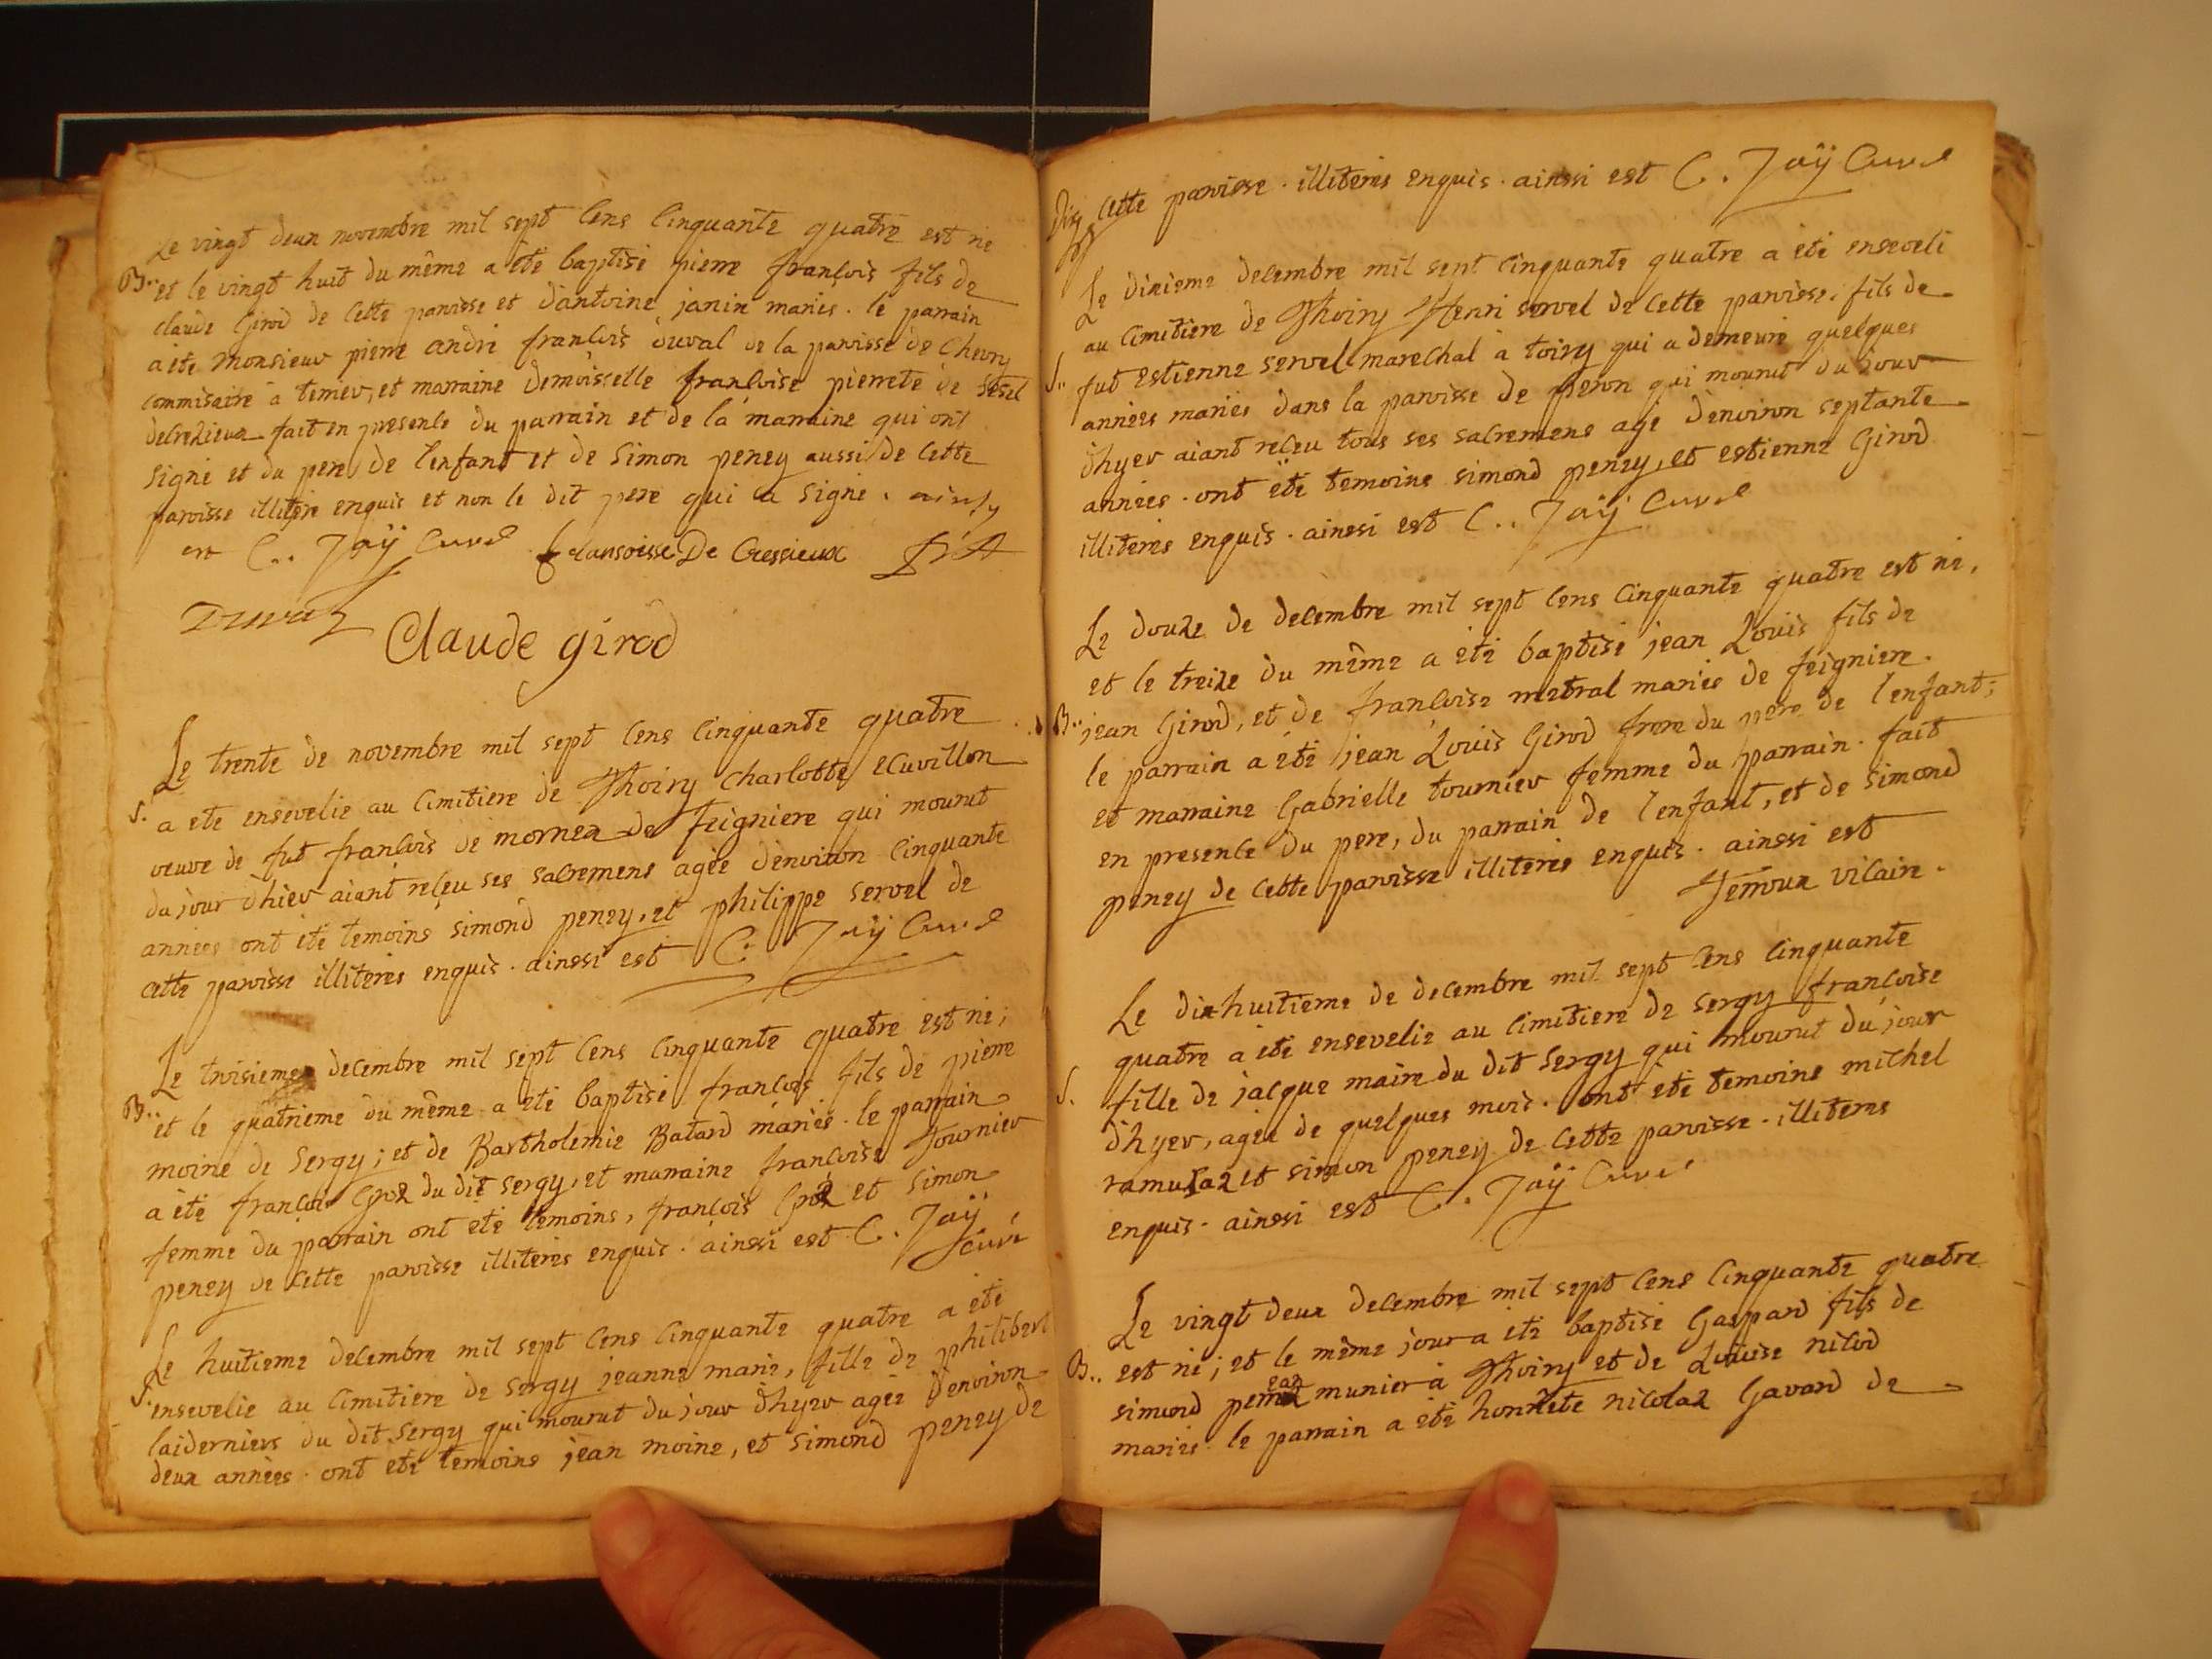 Le vingt deun novembre mil sept cens cinquante quatre est né
B.. et le vingt huit du même a été baptisé pierre françois fils de
claude Girod de cette paroisse et d'antoine janin mariés. le parrain
a été monsieur pierre andré françois duval de la paroisse de Chevry
commisaire à terrier, et marraine demoisselle françoise pierrete de
fait en presence du parrain et de la marraine qui ont
signé et du pere de l'enfant et de Simon peney aussi de cette
paroisse illitéré enquis et non le dit pere qui a signé. ainsy
est C.. Jaÿ Curé fransoisse De Cressieux
Duval
Claude girod
Le trente de novembre mil sept cens cinquante quatre
S. a été ensevelie au cimitiere de Thoiry charlotte ecuvillon
veuve de fut françois de mornex de feigniere qui mourut
du jour d'hier aiant reçeu ses sacremens agée d'environ cinquante
années ont été temoins simond peney, et philippe servel de
cette paroisse illiterés enquis. ainssi est C. Jaÿ Curé
Le troisieme decembre mil sept cens cinquante quatre est né;
B.. et le quatrieme du même a été baptisé françois fils de pierre
moine de Sergy; et de Bartholemie Batard mariés. le parrain
a été françois Groz du dit sergy, et marraine françoise Tournier
femme du parrain ont été temoins, françois Groz et simon
peney de cette paroisse illiterés enquis. ainssi est C. Jaÿ
curé
Le huitieme decembre mil sept cens cinquante quatre a été
S. ensevelie au cimitiere de sergy jeanne marie, fille de philibert
laiderniers du dit Sergy qui mourut du jour d'hyer agée d'environ
deux années. ont été temoins jean moine, et simond peney de
cette paroisse. illiterés enquis. ainssi est C. Jaÿ Curé
Le dixieme decembre mil sept cinquante quatre a été enseveli
au cimitiere de Thoiry Henri servel de cette paroisse, fils de
S.. fut estienne servel marechal à toiry qui a demeuré quelques
années mariés dans la paroisse de peron qui mourut du jour
d'hyer aiant reçeu tous ses sacremens agé d'environ septante
années. ont été temoins simond peney, et estienne Girod
illiterés enquis. ainssi est C.. Jaÿ Curé
Le douze de decembre mil sept cens cinquante quatre est né,
et le treize du même a été baptisé jean Louis fils de
B.. jean Girod, et de françoise metral mariés de feigniere.
le parrain a été jean Louis Girod frere du pere de l'enfant;
et marraine Gabrielle tournier femme du parrain. fait
en presence du pere, du parrain de l'enfant, et de simond
peney de cette paroisse illiterés enquis. ainssi est
Jemoux vicaire.
Le dix-huitieme de decembre mil sept cens cinquante
quatre a été ensevelie au cimitiere de sergy françoise
S. fille de jacque maire du dit Sergy qui mourut du jour
d'hyer, agée de quelques mois. ont été temoins michel
ramuzaz et simon peney de cette paroisse. illiteres
enquis. ainssi est C. Jaÿ Curé
Le vingt deux decembre mil sept cens cinquante quatre
B.. est né; et le même jour a été baptisé Gaspard fils de
simond munier à Thoiry et de Louise nicod
mariés. le parrain a été honnête nicolaz Gavard de